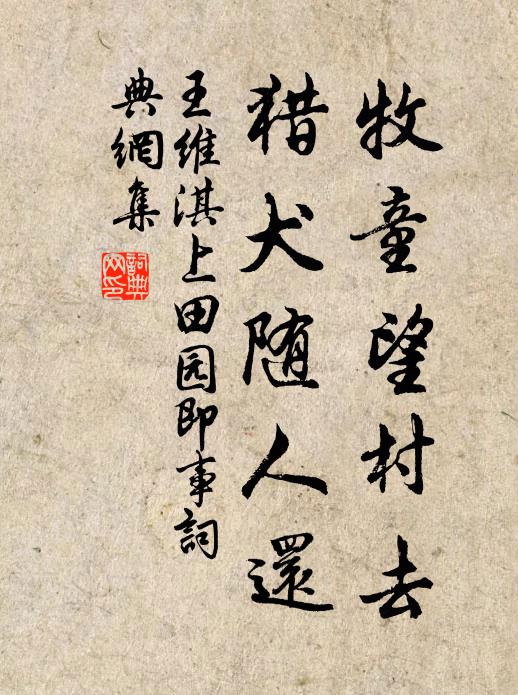 牧童望村去
猎犬随人還
王维淇上田园即事詞
典網集
詞典网印